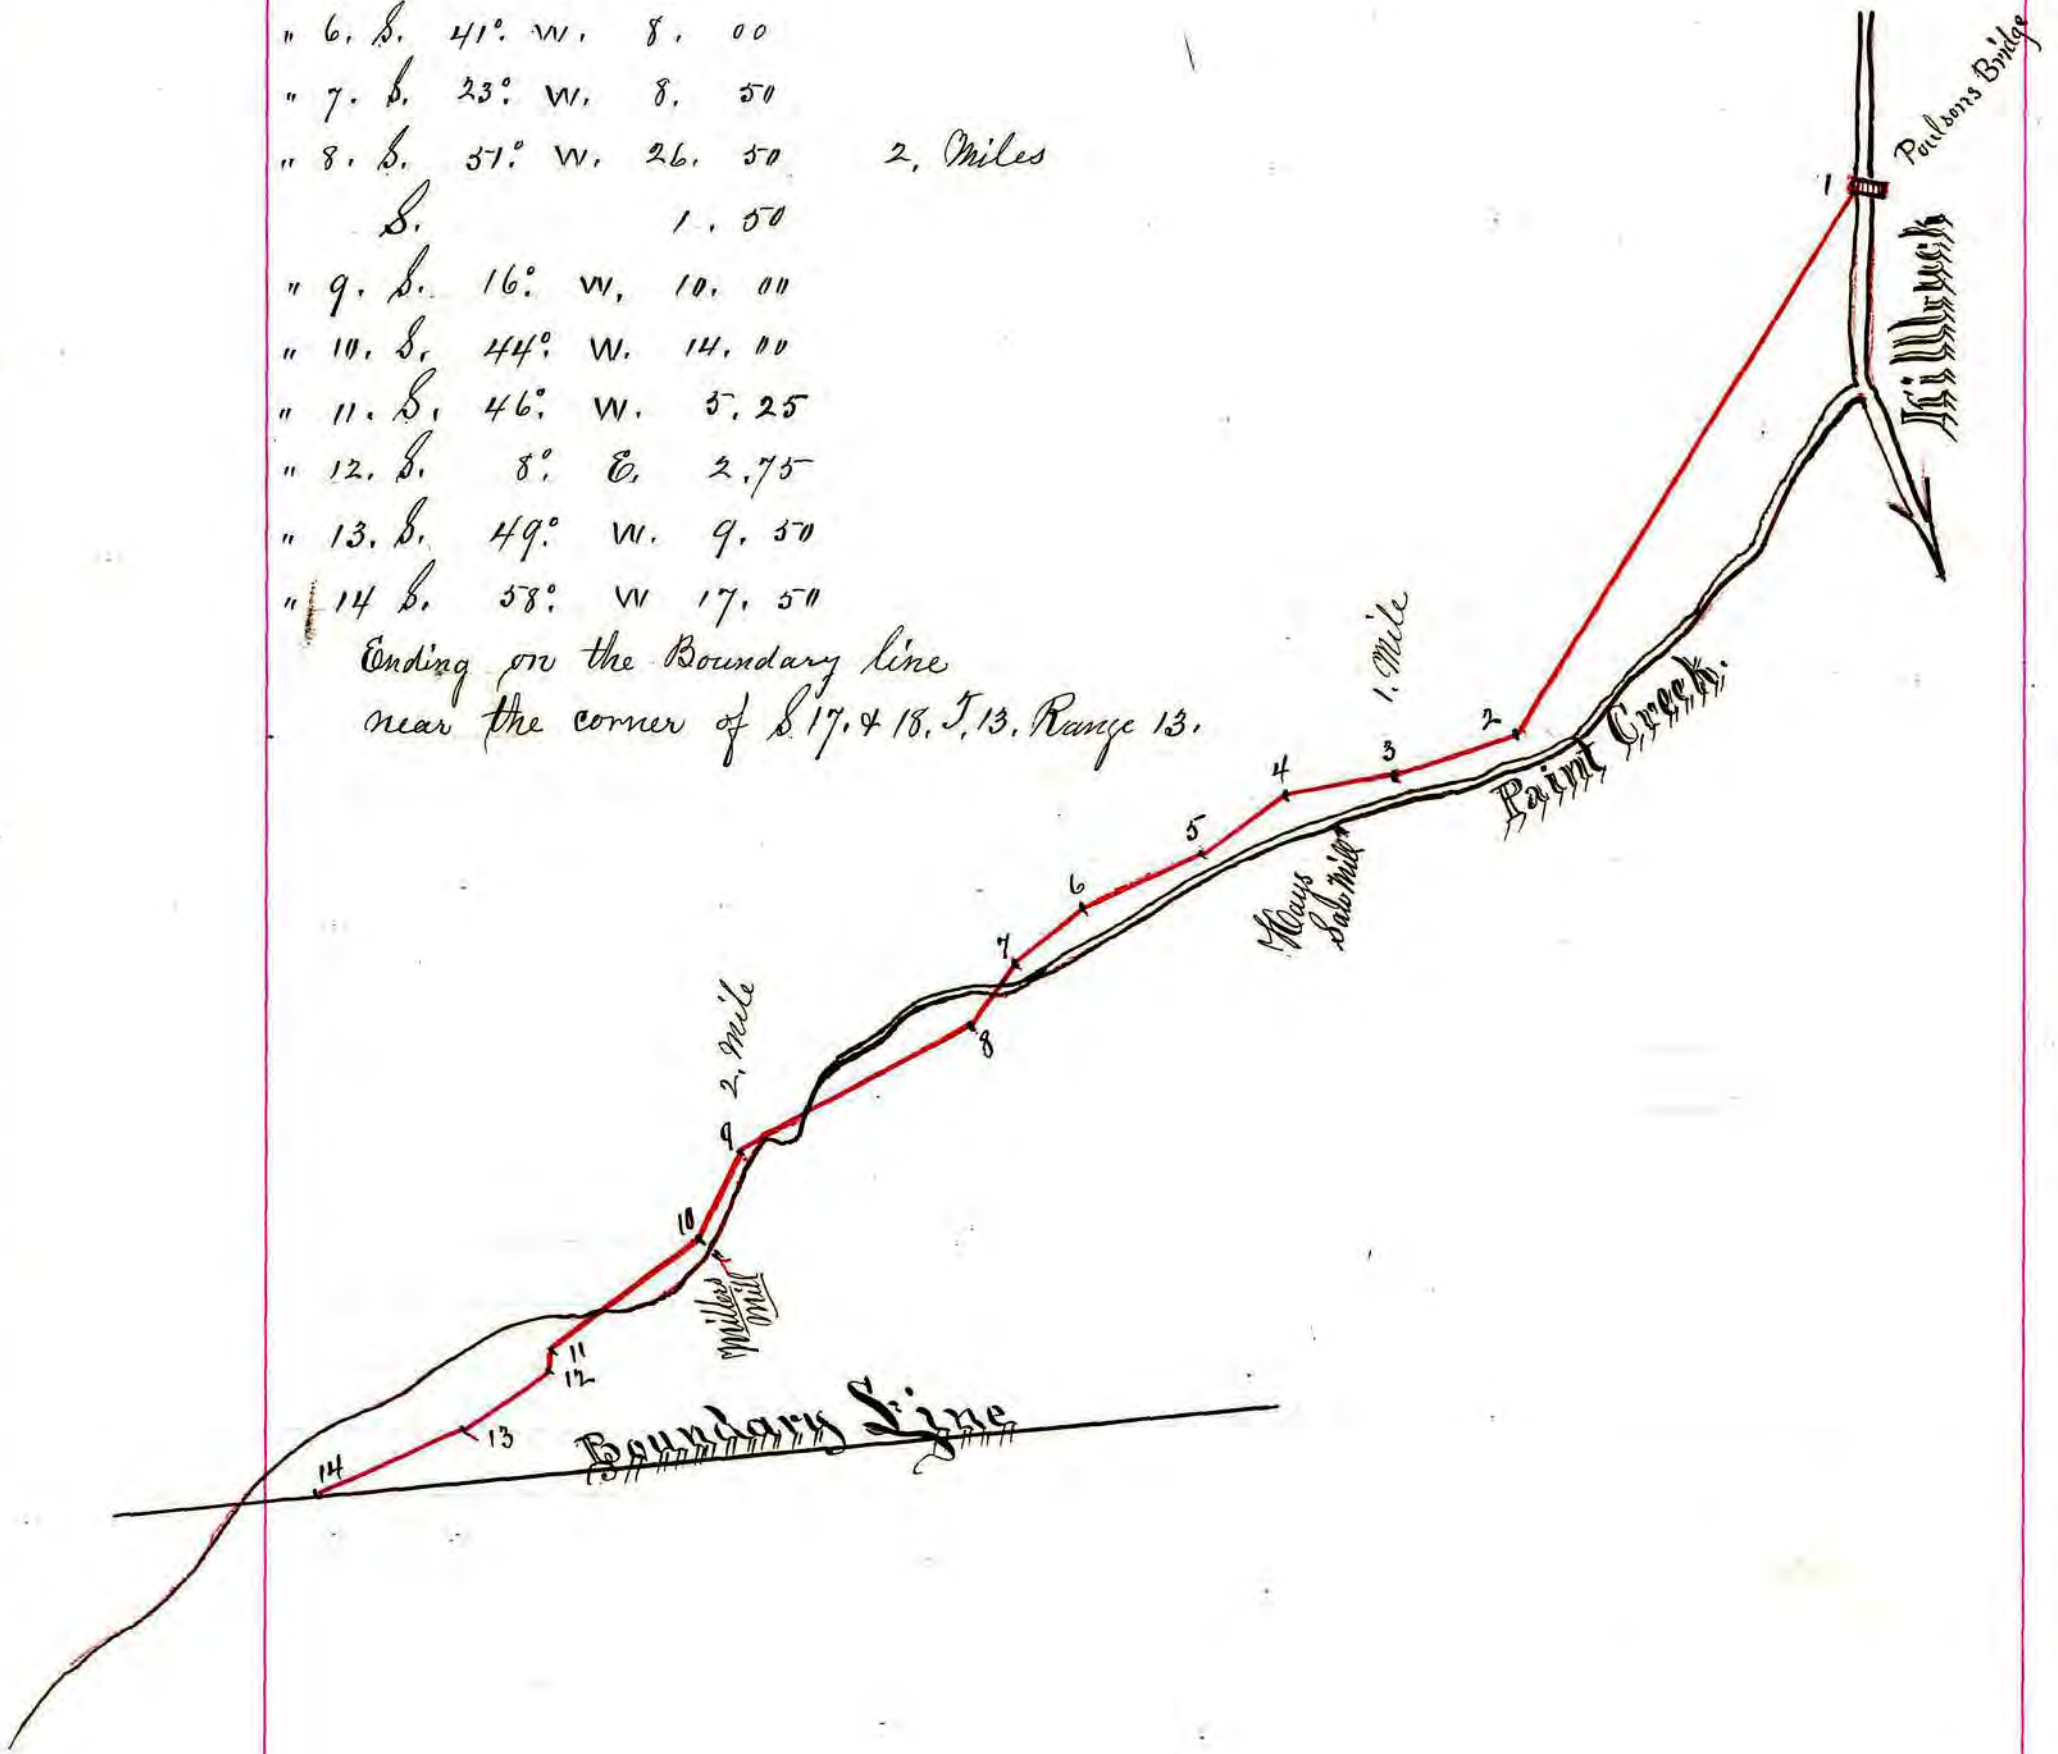 " 6. S. 41°. W. 8. 00
" 7. S. 23°. W. 8. 50
" 8. S. 51°. W. 26. 50 2, Miles
S. 1. 50
" 9. S. 16°. W. 10. 00
" 10. S. 44°. W. 14. 00
" 11. S. 46°. W. 5. 25
" 12. S. 8°. E. 2.75
" 13. S. 49°. W. 9. 50
" 14 S. 58°. W 17. 50
Ending on the Boundary line
near the corner of S. 17. & 18. T. 13. Range 13.
Poulsons Bridge
1
Killbuck
1. Mile
2
3
4
Paint Creek.
5
Hays
Saw Mill
6
7
8
2. Mile
9
10
Millers
Mill
11
12
13
14
Boundary Line